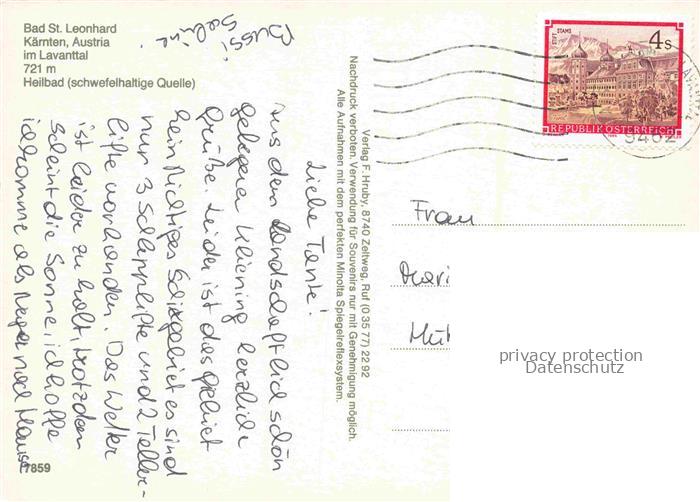 Bad St. Leonhard
Kärnten, Austria
im Lavanttal
721 m
Heilbad (schwefelhaltige Quelle)
Liebe Tante!
Aus dem landschaftlich schön
gelegenen Kliening herzliche
Grüße. Leider ist das Gebiet
kein richtiges Schigebiet es sind
nur 3 Schlepplifte und 2 Teller-
lifte vorhanden. Das Wetter
ist leider zu kalt, trotzdem
scheint die Sonne, ich hoffe
ich komme als Neger nach Hause
Bussi
Sabine
7859
Verlag F. Hruby, 8740 Zeltweg, Ruf (0 35 77) 22 92
Nachdruck verboten. Verwendung für Souvenirs nur mit Genehmigung möglich.
Alle Aufnahmen mit dem perfekten Minolta Spiegelreflexsystem.
STIFT STAMS
4 S
REPUBLIK ÖSTERREICH
9462
Frau
privacy protection
Datenschutz